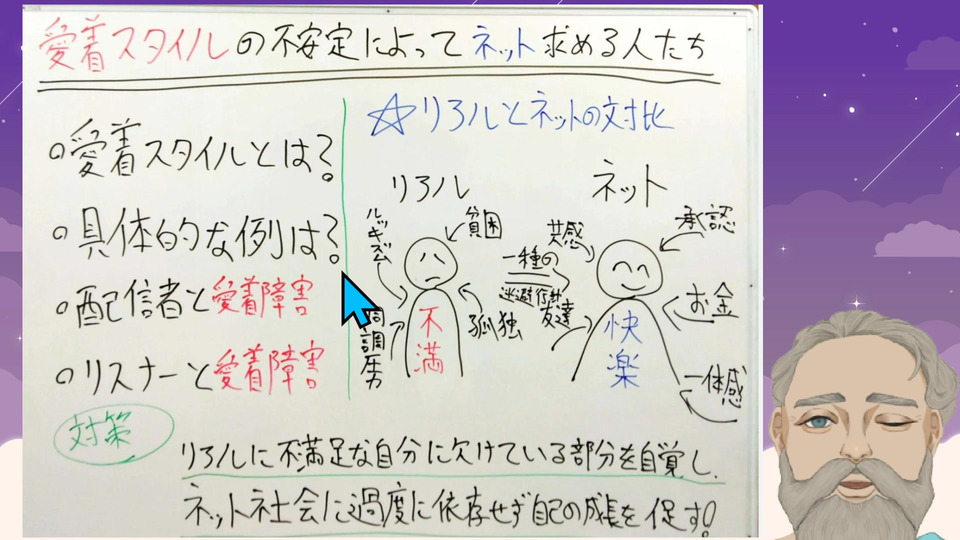 愛着スタイルの不安定によってネット求める人たち
○愛着スタイルとは?
○具体的な例は?
○配信者と愛着障害
○リスナーと愛着障害
☆リアルとネットの対比
リアル
ルッキズム
貧困
同調圧力
孤独
不満
一種の
逃避行動
ネット
共感
承認
友達
お金
一体感
快楽
対策
リアルに不満足な自分に欠けている部分を自覚し、
ネット社会に過度に依存せず自己の成長を促す!